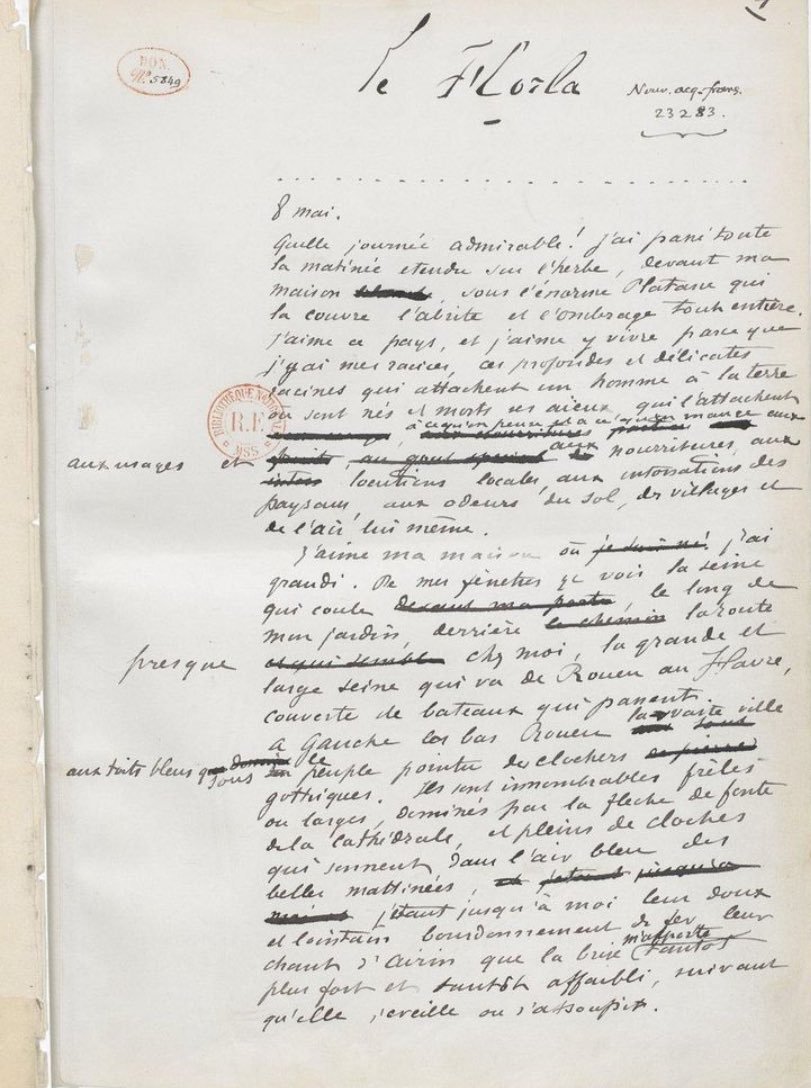 DON.
No. 5849
Le Horla
Nouv. acq. franç.
23283.
8 mai.
Quelle journée admirable ! j'ai passé toute
la matinée etendu sur l'herbe, devant ma
maison, sous l'énorme Platane qui
la couvre l'abrite et l'ombrage tout entière.
J'aime ce pays, et j'aime y vivre parce que
j'y ai mes racines, ces profondes et délicates
racines qui attachent un homme à la terre
où sont nés et morts ses aïeux, qui l'attachent
à ce qu'on pense et à ce qu'on mange aux
BIBLIOTHÈQUE NATIONALE
R.F.
MSS.
aux usages et aux nourritures, aux
locutions locales, aux intonations des
paysans, aux odeurs du sol, des villages et
de l'air lui même.
J'aime ma maison où je suis né. j'ai
grandi. De mes fenêtres je vois la seine
qui coule devant ma porte, le long de
mon jardin, derrière le chemin la route
presque et qui semble chez moi, la grande et
large seine qui va de Rouen au Havre,
couverte de bateaux qui passent.
A gauche la bas Rouen la vaste ville
aux toits bleus sous le
peuple pointu des clochers
gothiques. Ils sont innombrables frêles
ou larges, dominés par la fleche de fonte
de la cathédrale, et pleins de cloches
qui sonnent dans l'air bleu des
belles mattinées,
jetant jusqu'à moi leur doux
et lointain bourdonnement de fer leur
chant d'airin que la brise m'apporte tantot
plus fort et tantôt affaibli, suivant
qu'elle s'eveille ou s'assoupit.